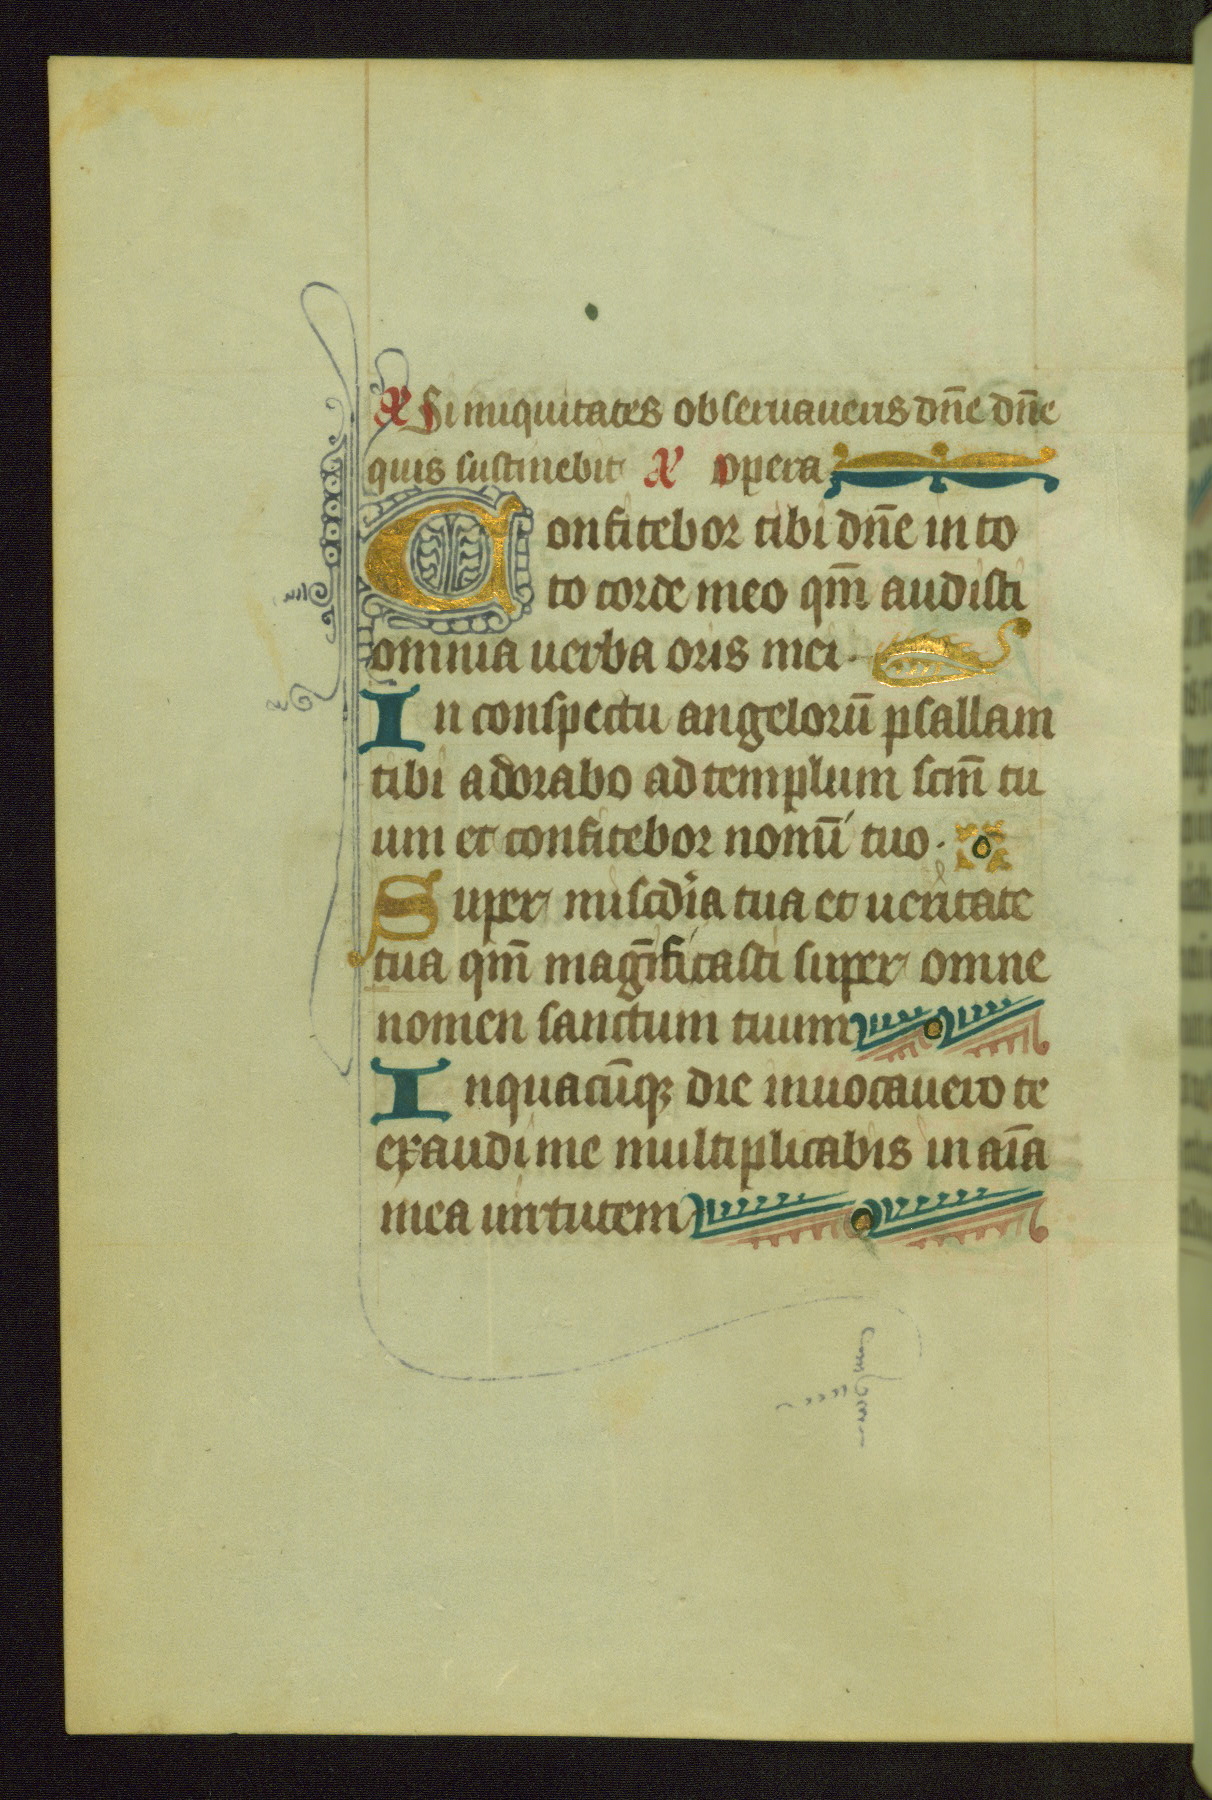 A Si iniquitates obseruaueris dn̄e dn̄e
quis sustinebit A opera
Confitebor tibi dn̄e in to
to corde meo qm̄ audisti
omnia uerba oris mei.
In conspectu angeloru̅ psallam
tibi adorabo ad templum scm̄ tu
um et confitebor nomi̅ tuo.
Super mis̄cdia tua et ueritate
tua qm̄ mag̅ificasti super omne
nomen sanctum tuum
In quacu̅qꝫ die inuocauero te
exaudi me multiplicabis in ai̅a
mea uirtutem